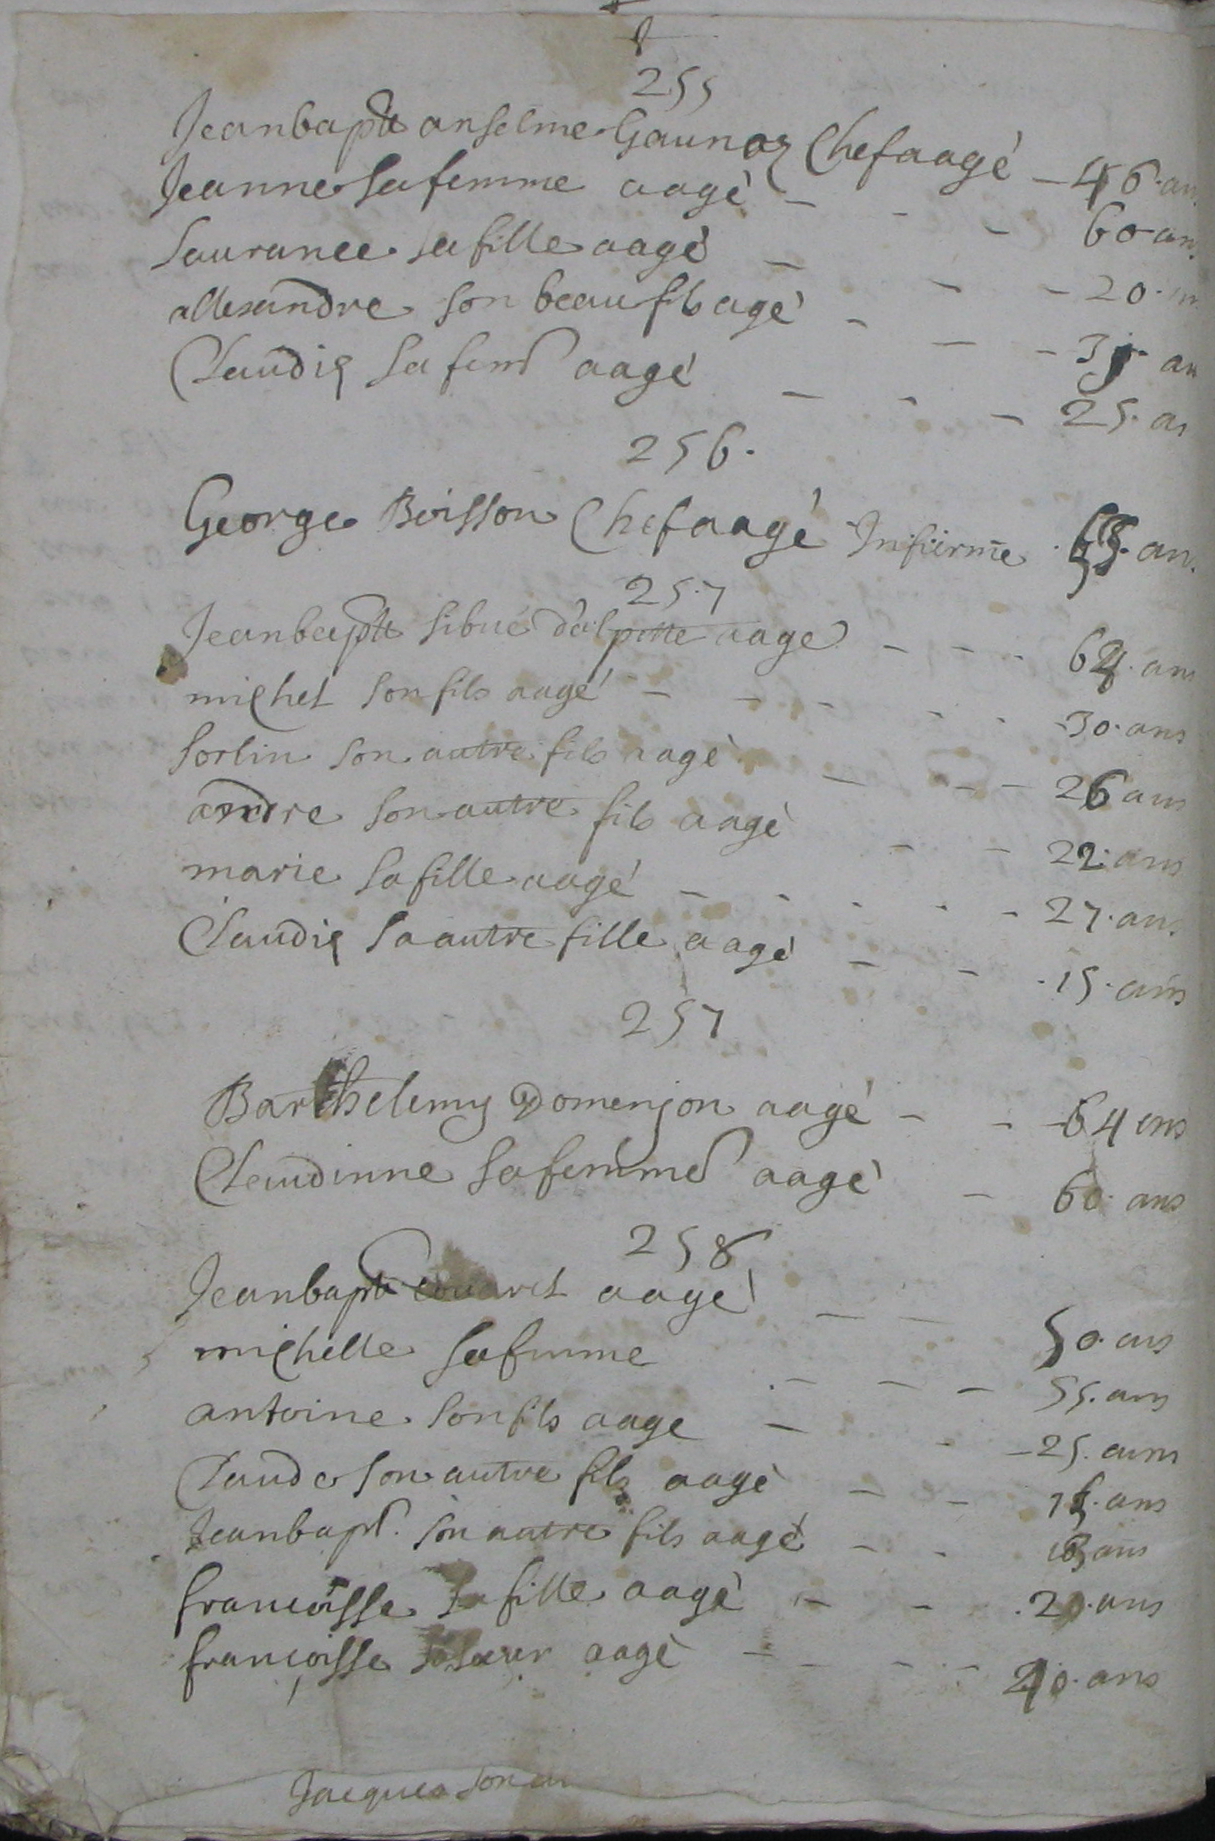 255
Jeanbaptte anselme Gaunoz Chef aagé 46 an
Jeanne sa femme aagé 60 an
Laurance sa fille aagé 20
allexandre son beau fils agé an
Claudiq sa fem aagé 25 an
256
George Boisson Chef aagé Infirme an
257
Jeanbaptte sibué aage ans
michel son fils aagé 30 ans
sorlin son autre fils aagé 26 ans
andre son autre fils aagé 22 ans
marie sa fille aagé 27 ans
Claudiq sa autre fille aagé 15 ans
257
Barthelemy Domenjon aagé 64 ans
Claudinne sa femme aagé 60 ans
258
Jeanbaptte aagé 50 ans
michelle sa femme 55 ans
antoine son fils aage 25 ans
Claude son autre fils aagé ans
Jeanbapt. son autre fils aagé ans
francoisse sa fille aagé ans
françoisse sa sœur aagé ans
Jacques son